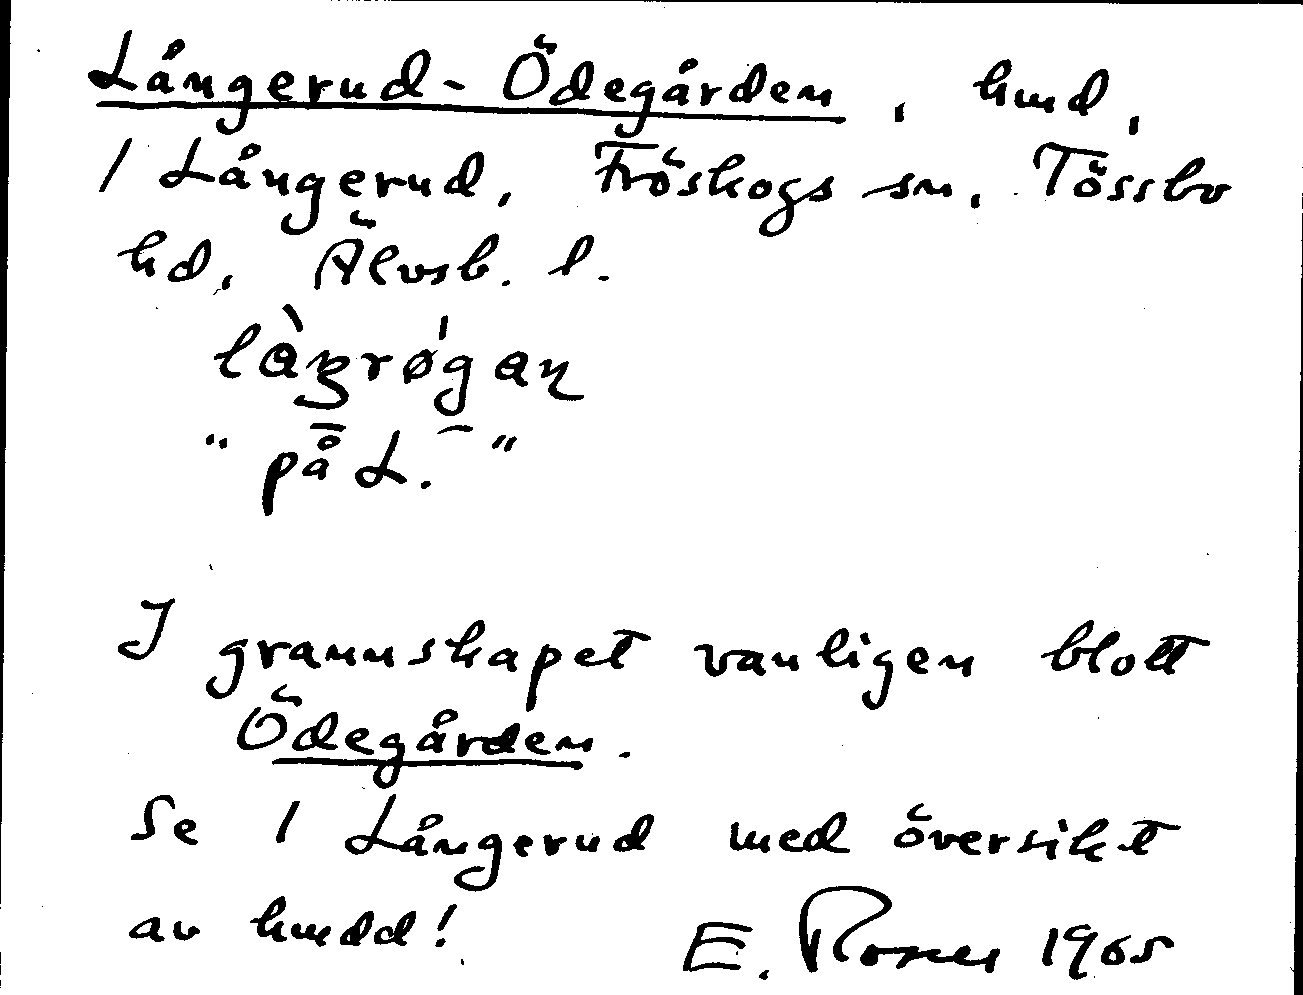 Långerud-Ödegården, hmd,
1 Långerud, Fröskogs sn, Tössbo
hd, Älvsb. l.
"på L."
I grannskapet vanligen blott
Ödegården.
Se 1 Långerud med översikt
av hmdd!
E. Rosell 1965